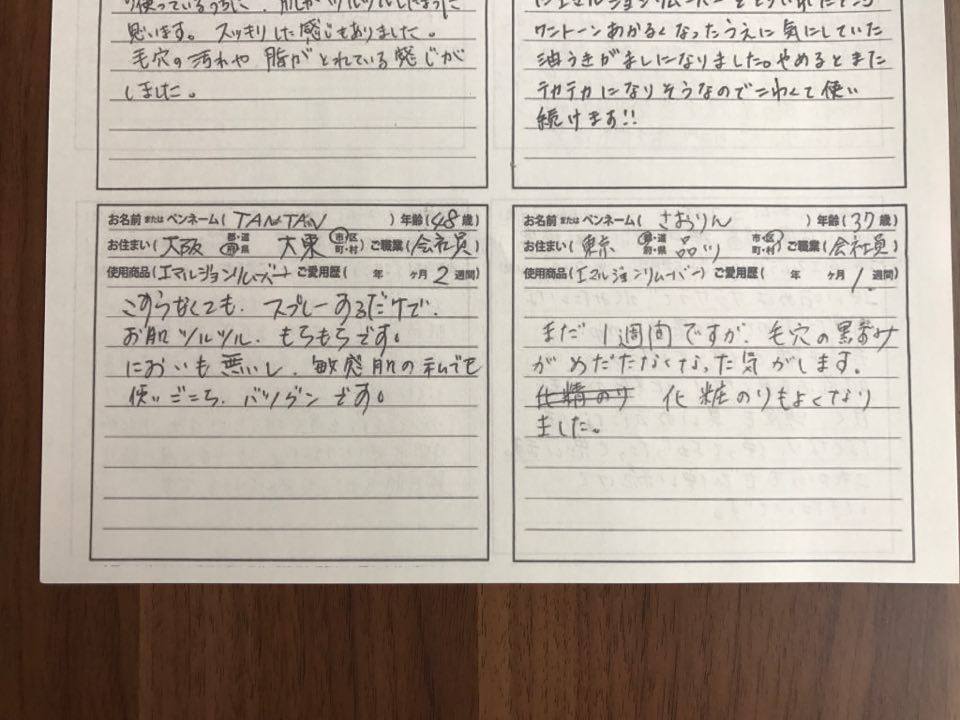 使っているうちに、肌がツルツルしたように
思います。スッキリした感じもありました。
毛穴の汚れや 脂がとれている感じが
しました。
ワントーンあかるくなったうえに気にしていた
油うきがましになりました。やめるとまた
テカテカになりそうなのでこわくて使い
続けます!!
お名前またはペンネーム( TANTAN ) 年齢(48歳)
お住まい( 大阪 都・道府・県 大東 市・区町・村) ご職業(会社員)
使用商品(エマルジョンリムーバー) ご愛用歴( 年 ヶ月 2 週間)
こすらなくても、スプレーするだけで、
お肌ツルツル、もちもちです。
においも無いし、敏感肌の私でも
使いごこち、バツグンです。
お名前またはペンネーム( さおりん ) 年齢(37歳)
お住まい( 東京 都・道府・県 品川 市・区町・村) ご職業(会社員)
使用商品(エマルジョンリムーバー) ご愛用歴( 年 ヶ月 1 週間)
まだ 1週間ですが、毛穴の黒ずみ
がめだたなくなった気がします。
化精のり 化粧のりもよくなり
ました。